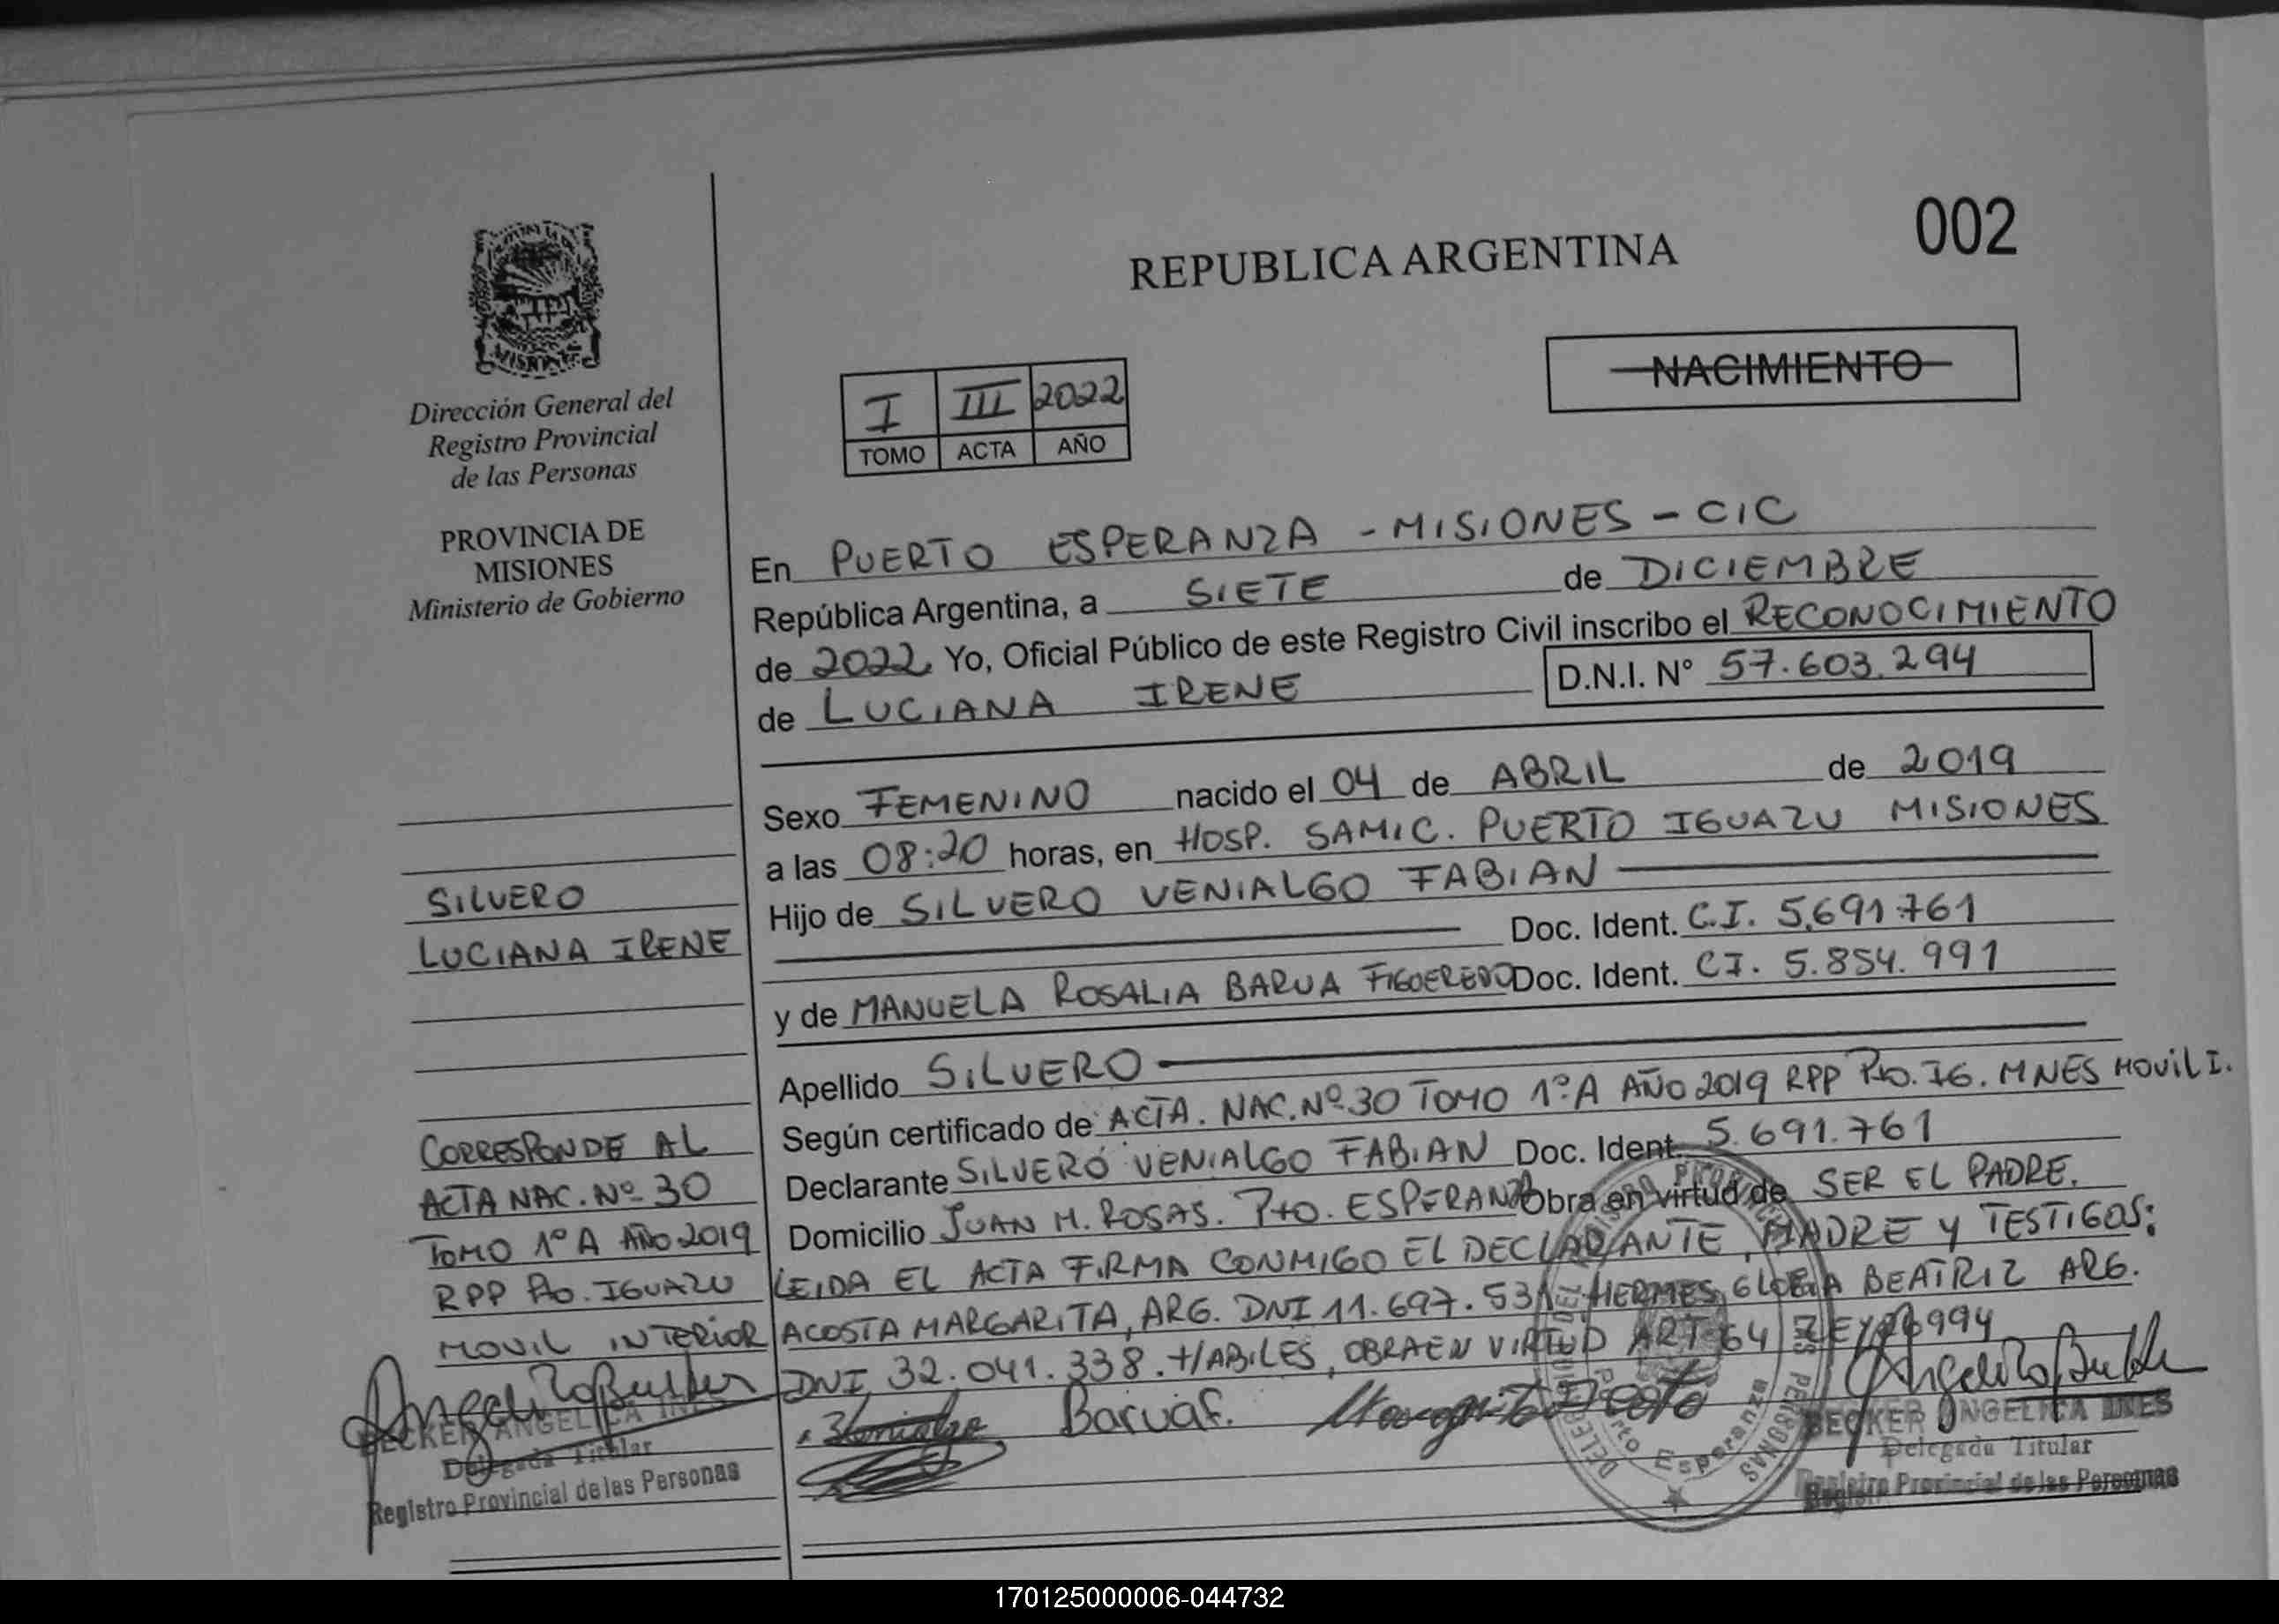 REPUBLICA ARGENTINA
002
NACIMIENTO
MISIONES
Dirección General del
Registro Provincial
de las Personas
PROVINCIA DE
MISIONES
Ministerio de Gobierno
I III 2022
TOMO ACTA AÑO
En PUERTO ESPERANZA - MISIONES - CIC
República Argentina, a SIETE de DICIEMBRE
de 2022 Yo, Oficial Público de este Registro Civil inscribo el RECONOCIMIENTO
de LUCIANA IRENE D.N.I. Nº 57.603.294
Sexo FEMENINO nacido el 04 de ABRIL de 2019
a las 08:20 horas, en HOSP. SAMIC. PUERTO IGUAZU MISIONES
Hijo de SILVERO VENIALGO FABIAN
Doc. Ident. C.I. 5.691.761
y de MANUELA ROSALIA BARUA FIGUEREDO Doc. Ident. CI. 5.854.991
Apellido SILVERO
Según certificado de ACTA. NAC. Nº 30 TOMO 1º A AÑO 2019 RPP Pto. IG. MNES MOVIL I.
Declarante SILVERO VENIALGO FABIAN Doc. Ident. 5.691.761
Domicilio JUAN M. ROSAS. Pto. ESPERANZA Obra en virtud de SER EL PADRE.
LEIDA EL ACTA FIRMA CONMIGO EL DECLARANTE, MADRE Y TESTIGOS:
ACOSTA MARGARITA, ARG. DNI 11.697.531 HERMES GLORIA BEATRIZ ARG.
DNI 32.041.338. HABILES, OBRA EN VIRTUD ART 64 LEY 26994
SILVERO
LUCIANA IRENE
CORRESPONDE AL
ACTA NAC. Nº 30
TOMO 1º A AÑO 2019
RPP Pto. IGUAZU
MOVIL INTERIOR
BECKER ANGELICA INES
Delegada Titular
Registro Provincial de las Personas
Barua F.
Puerto Esperanza
BECKER ANGELICA INES
Delegada Titular
Registro Provincial de las Personas
170125000006-044732